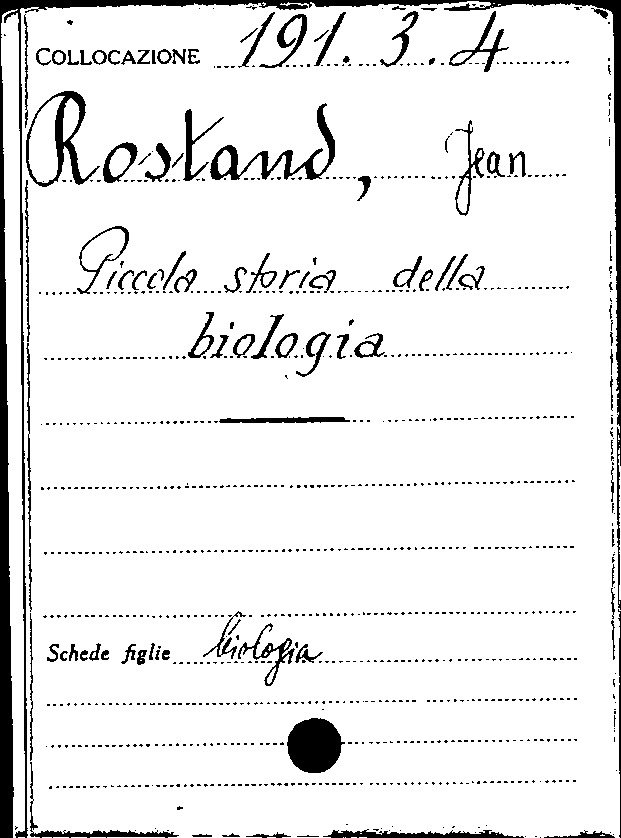 COLLOCAZIONE 191. 3. 4
Rostand, Jean
Piccola storia della
biologia
Schede figlie biologia